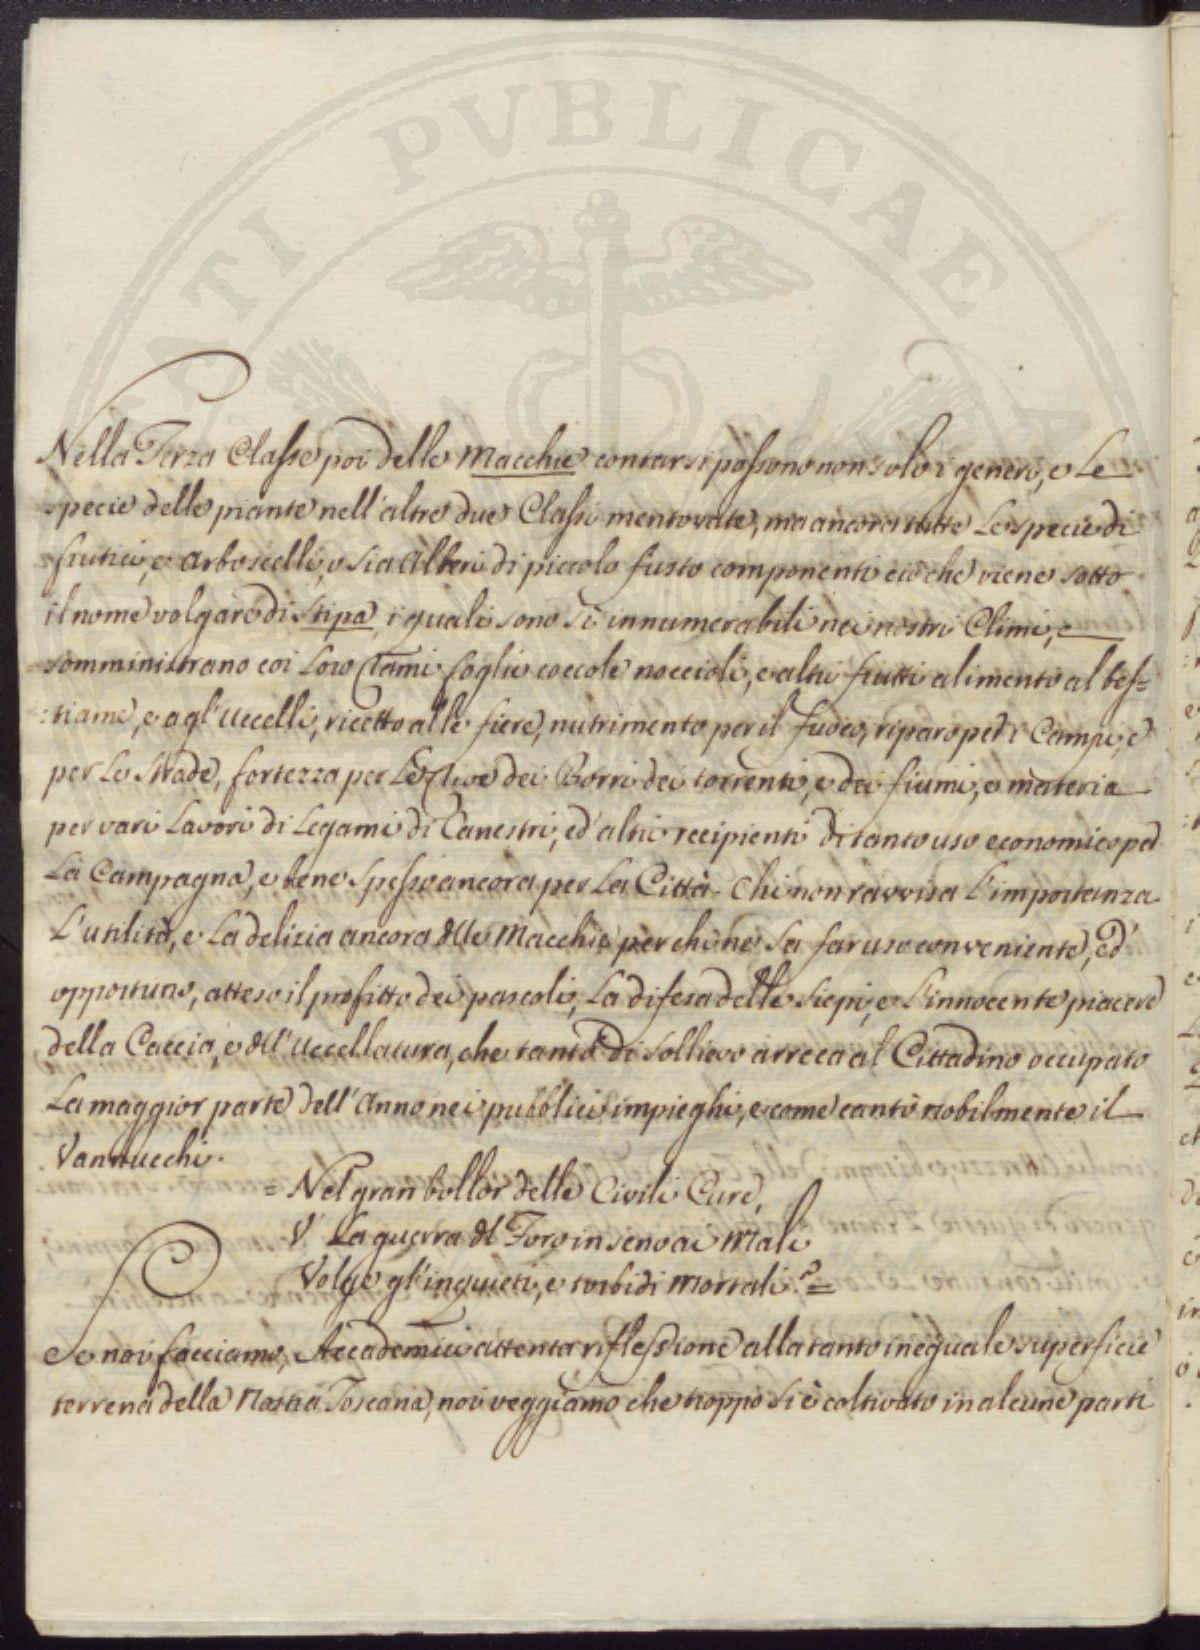 ATI PVBLICAE
Nella Terza Classe poi delle Macchie contar si possono non solo i generi, e Le
specie delle piante nell'altre due Classi mentovate, ma ancora tutte Le specie di
frutici, e arboscelli, o sia Alberi di piccolo fusto componenti ciò che viene sotto
il nome volgare di Stipa, i quali sono sì innumerabili nei nostri Climi, e
somministrano coi Loro Stami foglie coccole noccioli, e altri frutti alimento al bes=
:tiame, e agl'Uccelli, ricetto alle fiere, nutrimento per il fuoco, riparo per i Campi, e
per Le Strade, fortezza per Le Rive dei Borri dei torrenti, e dei fiumi, e materia
per vari Lavori di Legami di Canestri, ed altri recipienti di tanto uso economico per
La Campagna, e bene Spesso ancora per La Città. Chi non ravvisa L'importanza
L'utilità, e La delizia ancora delle Macchie per chi ne Sa far uso conveniente, ed
opportuno, atteso il profitto dei pascoli, La difesa delle Siepi, e L'innocente piacere
della Caccia, e dell'Uccellatura, che tanto di sollievo arreca al Cittadino occupato
La maggior parte dell'Anno nei pubblici impieghi, e come cantò nobilmente il
Vannucchi.
= Nel gran bollor delle Civili Cure,
V' La guerra del Foro in seno ai Mali
Volge gl'inquieti, e torbidi Mortali? =
Se noi facciamo, Accademici attenta riflessione alla tanto ineguale superficie
terrena della Nostra Toscana, noi veggiamo che troppo si è coltivato in alcune parti